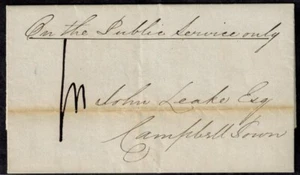 On the Public Service only
John Leake Esq
Campbell Town